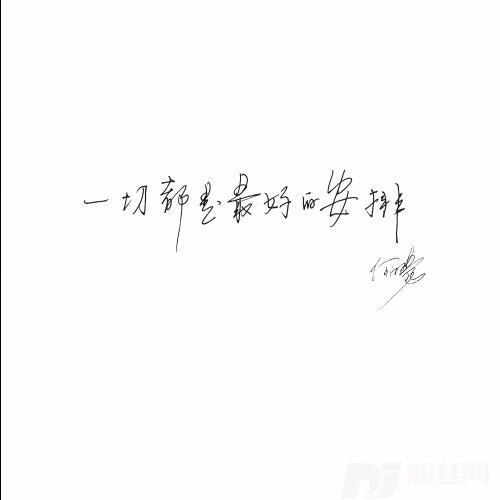 一切都是最好的安排
粉丝网